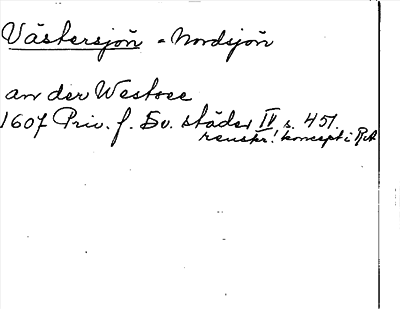 Västersjön = Nordsjön
an der Westsee
1607 Priv. f. Sv. städer IV s. 451.
renskr.! koncept i RA